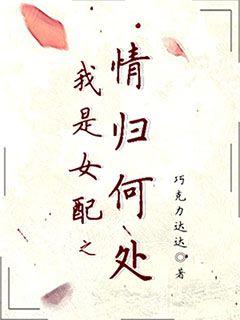 我是女配之
情归何处
巧克力达达◎著